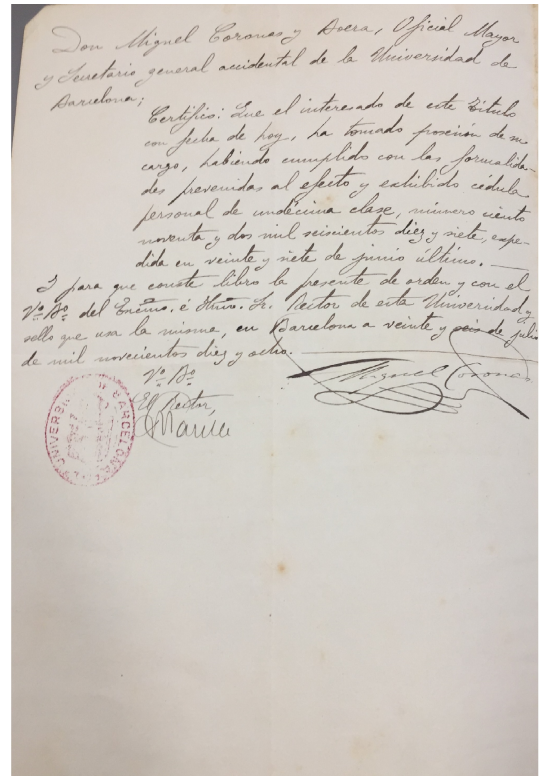 Don Miguel Coronas y Acera, Oficial Mayor
y Secretario general accidental de la Universidad de
Barcelona;
Certifico: Que el interesado de este Título
con fecha de hoy, ha tomado posesión de su
cargo, habiendo cumplido con las formalida-
des prevenidas al efecto y exhibido cédula
personal de undécima clase, número ciento
noventa y dos mil seiscientos diez y siete, expe-
dida en veinte y siete de junio último.
Y para que conste libro la presente de orden y con el
Vº Bº del Excmo. é Iltmo. Sr. Rector de esta Universidad y
sello que usa la misma, en Barcelona a veinte y seis de julio
de mil novecientos diez y ocho.
Vº Bº
El Rector,
Miguel Coronas
UNIVERSIDAD BARCELONA